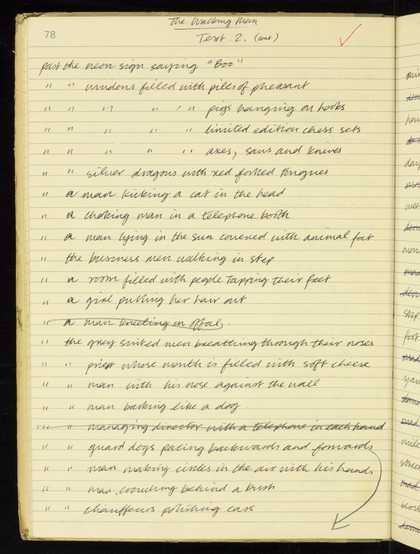 78
The Walking Man
Text 2. (cont)
past the neon sign saying "Boo"
" " windows filled with piles of pheasant
" " " " " pigs hanging on hooks
" " " " " limited edition chess sets
" " " " " axes, saws and knives
" " silver dragons with red forked tongues
" a man kicking a cat in the head
" a choking man in a telephone booth
" a man lying in the sun covered with animal fat
" the business men walking in step
" a room filled with people tapping their feet
" a girl pulling her hair out
" a man in offal
" the grey suited men breathing through their noses
" " priest whose mouth is filled with soft cheese
" " man with his nose against the wall
" " man barking like a dog
" " managing director with a telephone in each hand
" " guard dogs pacing backwards and forwards
" " man making circles in the air with his hands
" " man crouching behind a bush
" " chauffeurs polishing cars